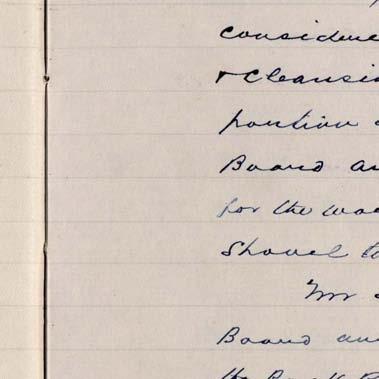 conside
& Cleansi
portion
Board an
for the wa
Shovel to
Mr
Board and
the B